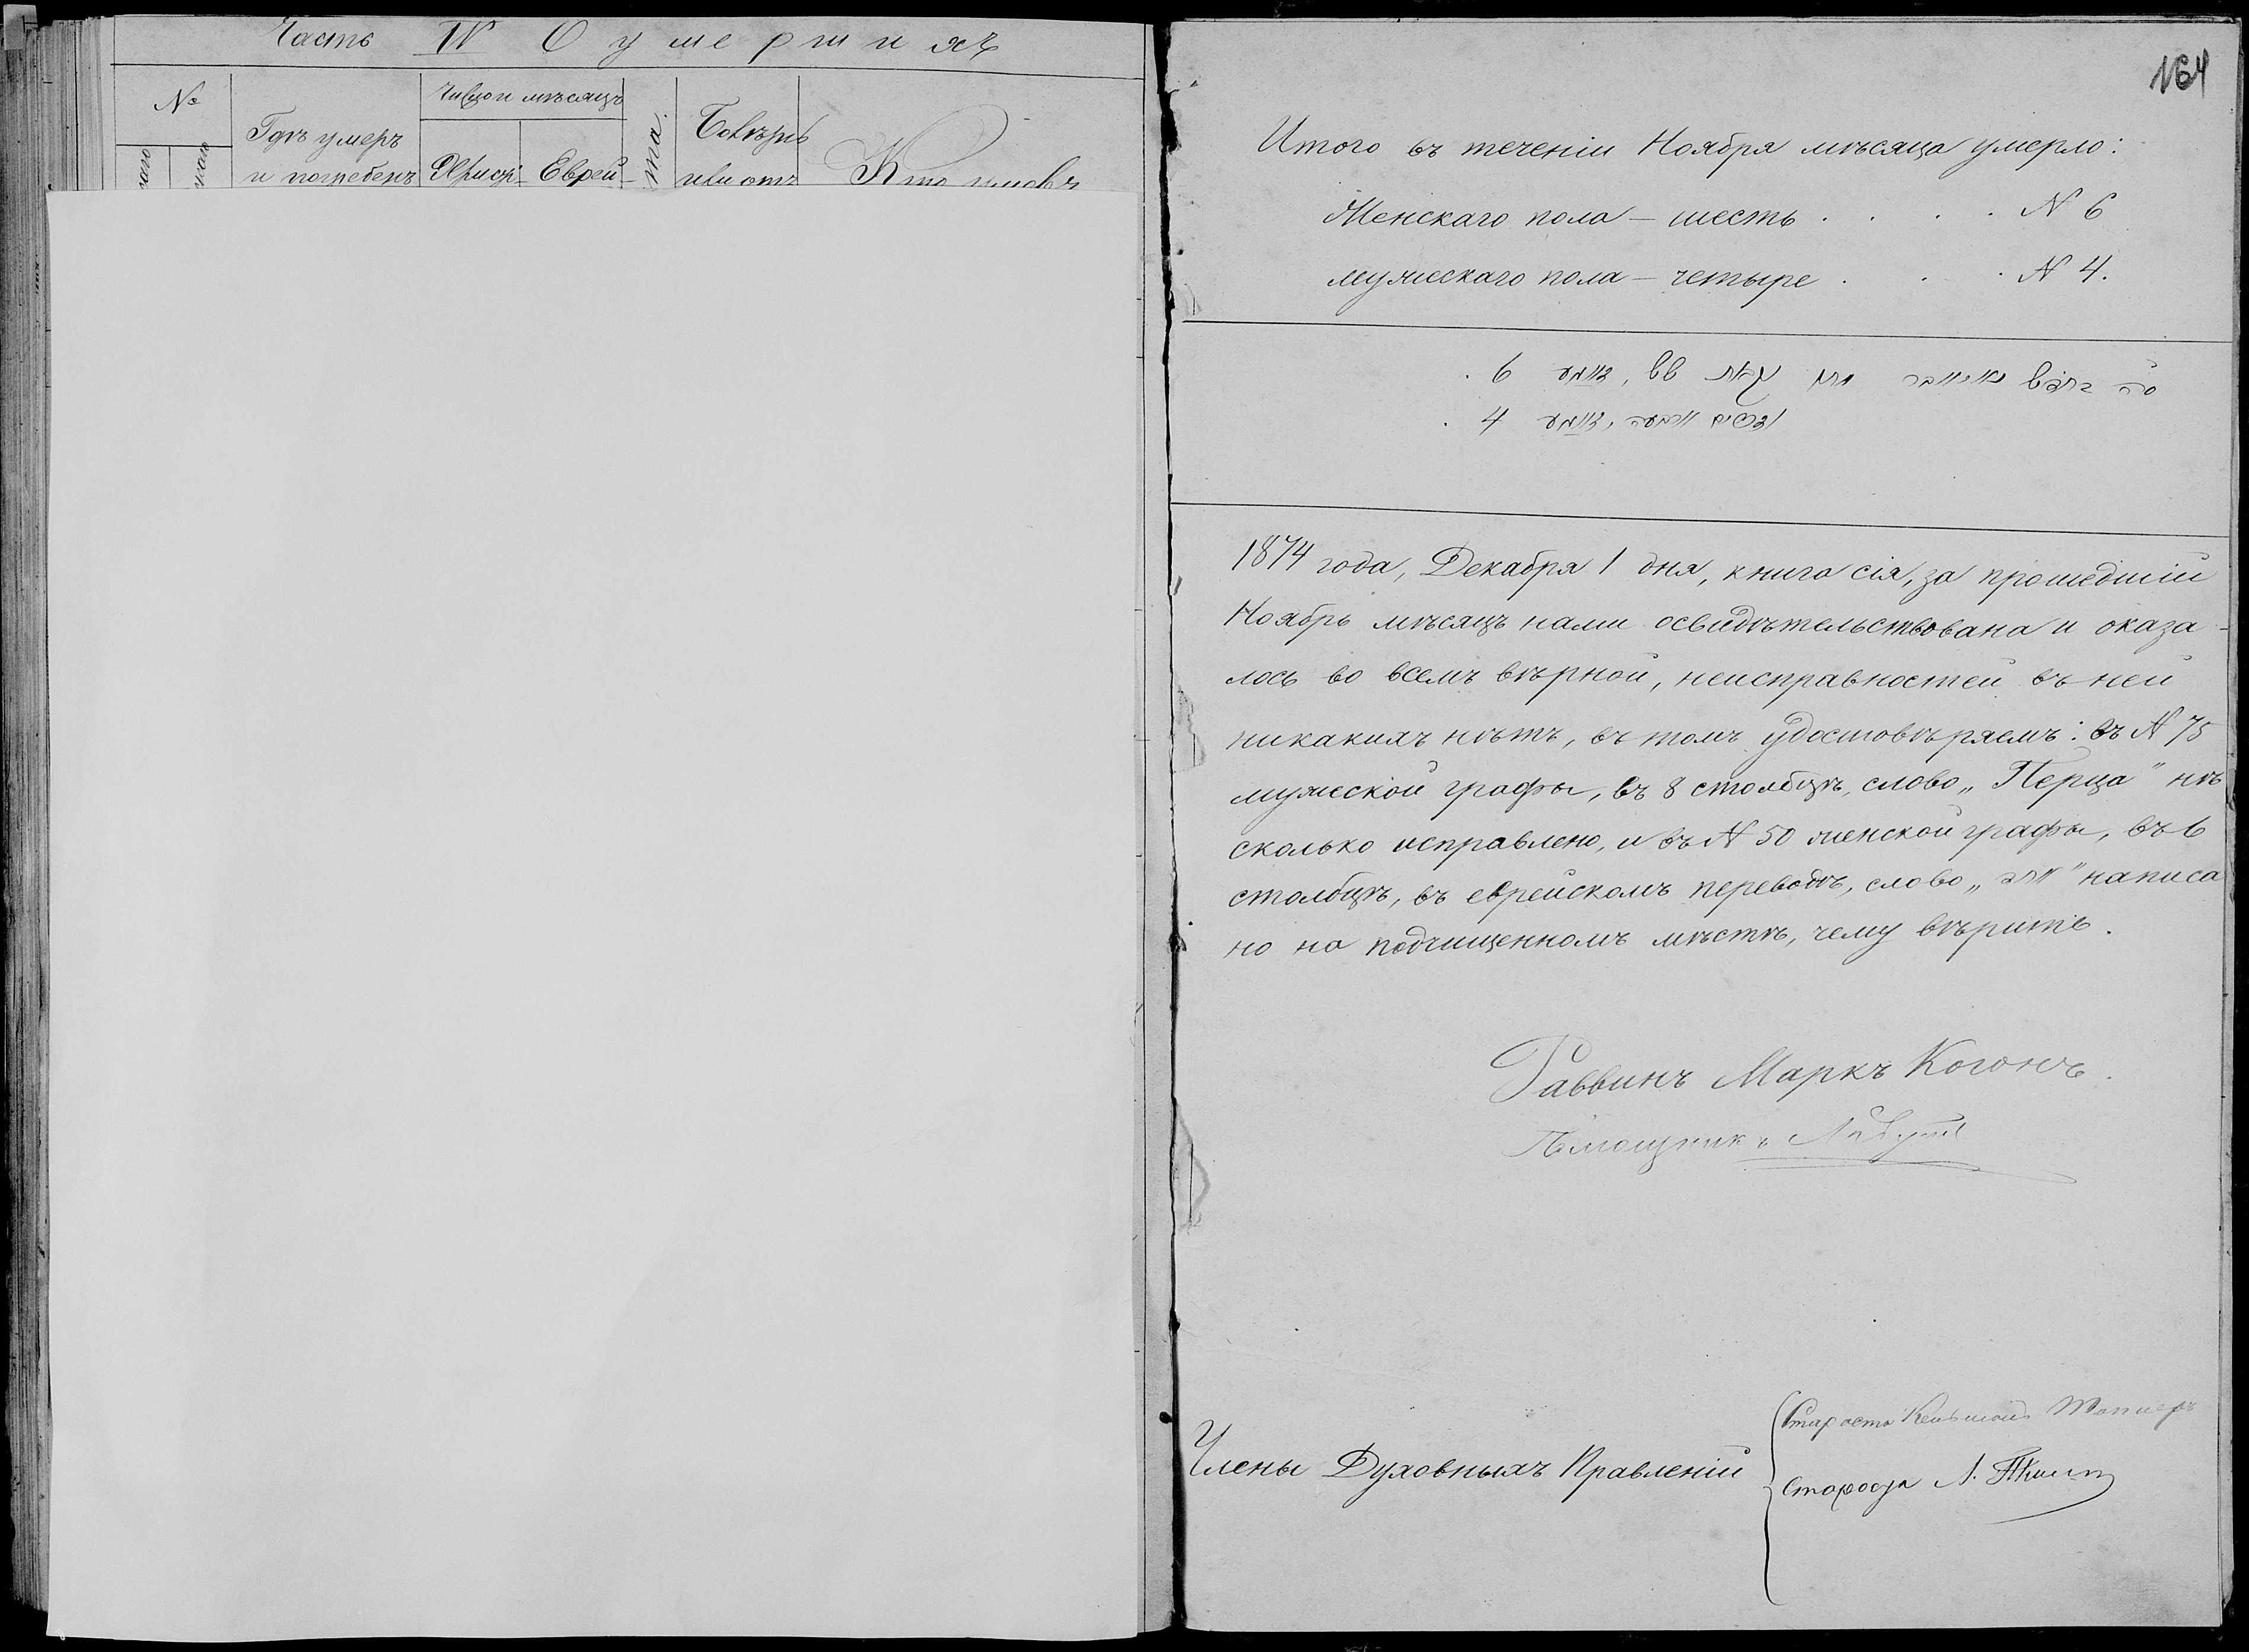 Часть IV О умершихъ
№
Гдѣ умеръ
и погребенъ
Число и мѣсяцъ
Христ-
Еврей-
Болѣзнь
или отъ
164
Итого въ теченіи Ноября мѣсяца умерло:
Женскаго пола — шесть . . . . N 6
мужескаго пола — четыре . . . N 4.
6
4
1874 года, Декабря 1 дня, книга сія, за прошедшій
Ноябрь мѣсяцъ нами освидѣтельствована и оказа-
лось во всемъ вѣрной, неисправностей въ ней
никакихъ нѣтъ, въ томъ удостовѣряемъ: въ N 75
мужеской графы, въ 8 столбцѣ, слово „Перца" нѣ
сколько исправлено, и въ N 50 женской графы, въ 6
столбцѣ, въ еврейскомъ переводѣ, слово написа
но на подчищенномъ мѣстѣ, чему вѣрить.
Раввинъ Маркъ Когонъ.
Помощникъ
Члены Духовныхъ Правленій
Староста
Староста Л.